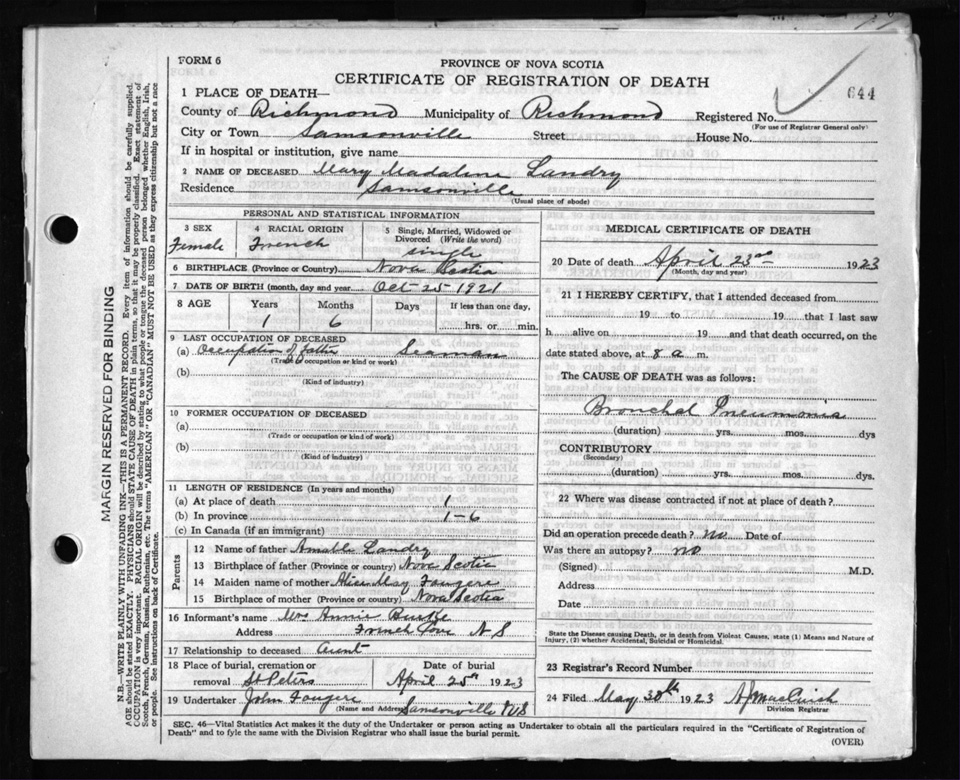 FORM 6
PROVINCE OF NOVA SCOTIA
CERTIFICATE OF REGISTRATION OF DEATH
644
1 PLACE OF DEATH—
County of Richmond Municipality of Richmond Registered No.
(For use of Registrar General only)
City or Town Samsonville Street House No.
If in hospital or institution, give name
2 NAME OF DECEASED Mary Madaline Landry
Residence Samsonville
(Usual place of abode)
PERSONAL AND STATISTICAL INFORMATION
3 SEX
Female
4 RACIAL ORIGIN
French
5 Single, Married, Widowed or Divorced (Write the word)
single
6 BIRTHPLACE (Province or Country) Nova Scotia
7 DATE OF BIRTH (month, day and year) Oct 25 1921
8 AGE Years Months Days If less than one day,
1 6 hrs. or min.
9 LAST OCCUPATION OF DECEASED
(a) Occupation of father Seaman
(Trade or occupation or kind or work)
(b)
(Kind of industry)
10 FORMER OCCUPATION OF DECEASED
(a)
(Trade or occupation or kind of work)
(b)
(Kind of industry)
11 LENGTH OF RESIDENCE (In years and months)
(a) At place of death 1
(b) In province 1-6
(c) In Canada (if an immigrant)
Parents
12 Name of father Amable Landry
13 Birthplace of father (Province or country) Nova Scotia
14 Maiden name of mother Alice May Fougere
15 Birthplace of mother (Province or country) Nova Scotia
16 Informant's name Mrs Annie Burke
Address French Cove N S
17 Relationship to deceased Aunt
18 Place of burial, cremation or removal St Peters
Date of burial
April 25th 1923
19 Undertaker John Fougere
(Name and Address) Samsonville N S
MEDICAL CERTIFICATE OF DEATH
20 Date of death April 23rd 1923
(Month, day and year)
21 I HEREBY CERTIFY, that I attended deceased from
19 to 19 that I last saw
h alive on 19 and that death occurred, on the
date stated above, at 8 a m.
The CAUSE OF DEATH was as follows:
Bronchal Pneumonia
(duration) yrs. mos. dys
CONTRIBUTORY
(Secondary)
(duration) yrs. mos. dys.
22 Where was disease contracted if not at place of death?
Did an operation precede death? no Date of
Was there an autopsy? no
(Signed) M.D.
Address
Date
State the Disease causing Death, or in death from Violent Causes, state (1) Means and Nature of
Injury, (2) whether Accidental, Suicidal or Homicidal.
23 Registrar's Record Number
24 Filed May 30th 1923 A J MacCuish
Division Registrar
SEC. 46—Vital Statistics Act makes it the duty of the Undertaker or person acting as Undertaker to obtain all the particulars required in the "Certificate of Registration of
Death" and to fyle the same with the Division Registrar who shall issue the burial permit.
(OVER)
MARGIN RESERVED FOR BINDING
N.B.—WRITE PLAINLY WITH UNFADING INK—THIS IS A PERMANENT RECORD. Every item of information should be carefully supplied.
AGE should be stated EXACTLY. PHYSICIANS should STATE CAUSE OF DEATH in plain terms, so that it may be properly classified. Exact statement of
OCCUPATION is very important. RACIAL ORIGIN will be described by stating to what people or tongue the deceased person belonged whether English, Irish,
Scotch, French, German, Russian, Ruthenian, etc. The terms "AMERICAN" OR "CANADIAN" MUST NOT BE USED as they express citizenship but not a race
or people. See instructions on back of Certificate.